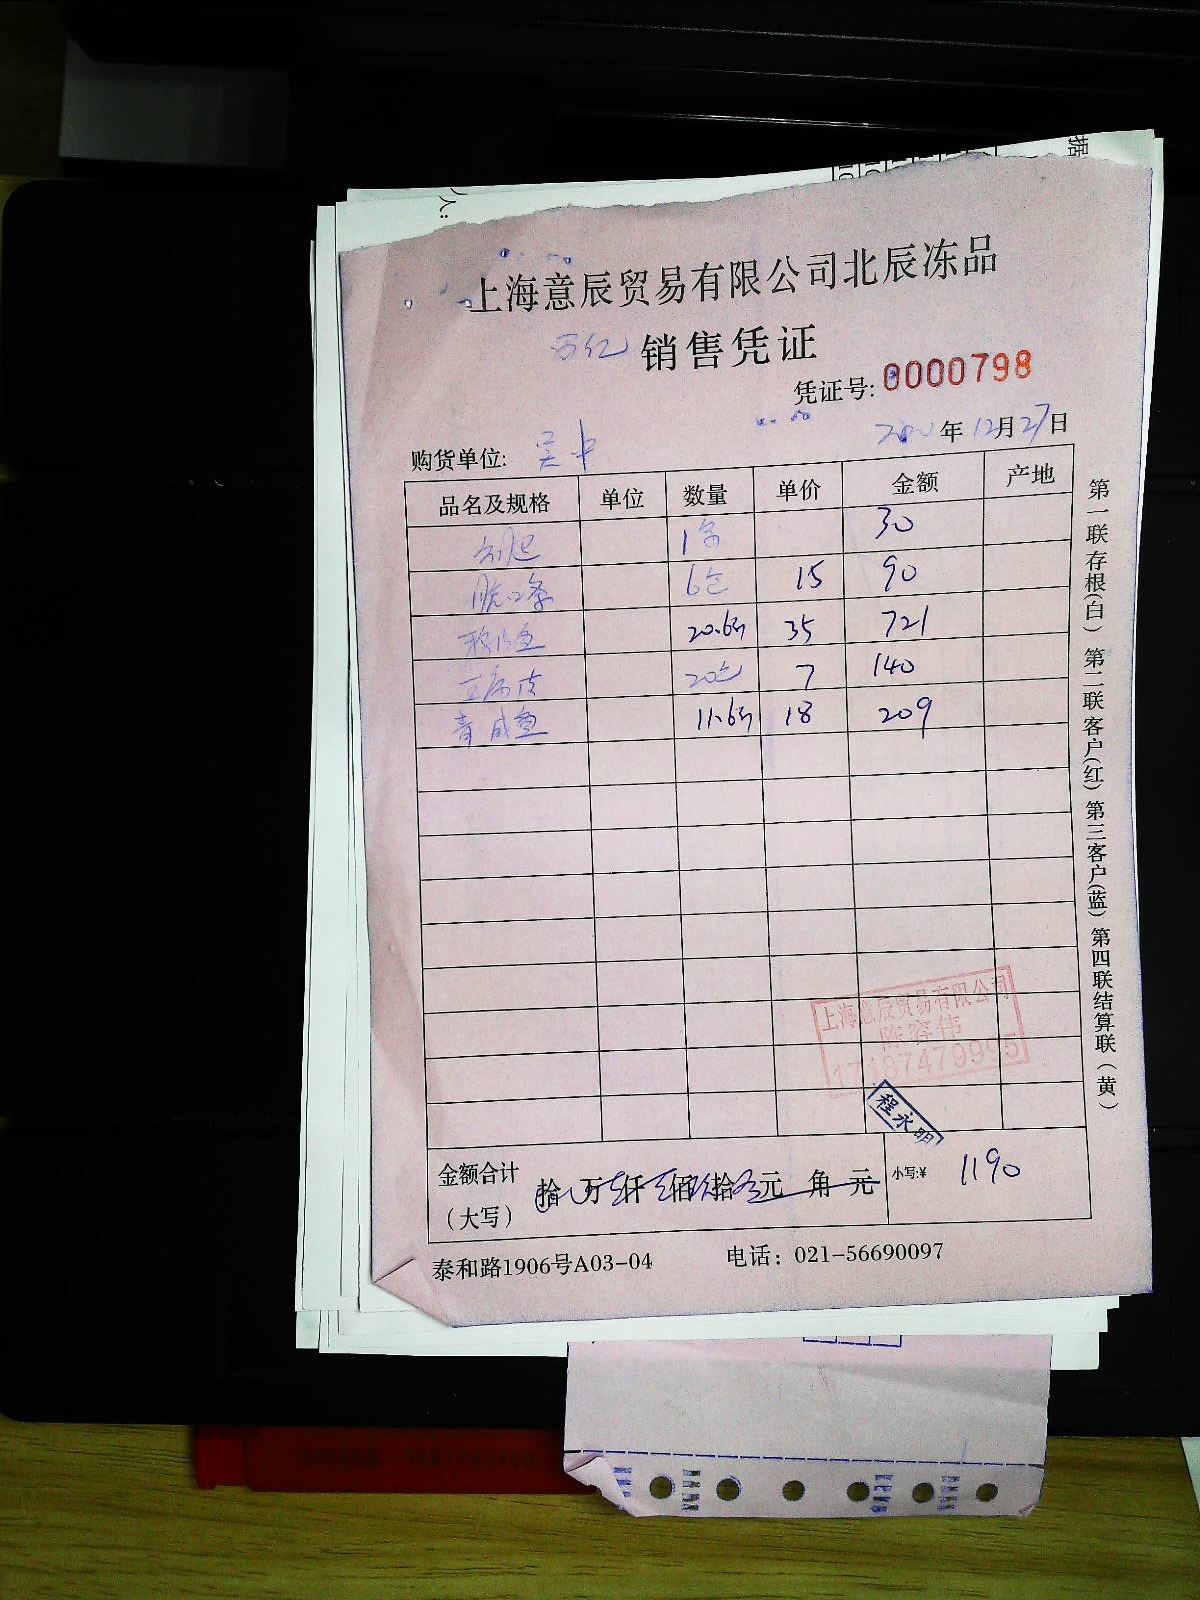 人:
据
上海意辰贸易有限公司北辰冻品
销售凭证
凭证号: 0000798
年12月27日
购货单位: 吴中
品名及规格 单位 数量 单价 金额 产地
1 30
6包 15 90
20.6 35 721
20包 7 140
青咸鱼 11.6 18 209
上海意辰贸易有限公司
陈容伟
17187479995
程永明
金额合计
(大写)
拾 万 仟 佰 拾 元 角 元
小写:¥ 1190
泰和路1906号A03-04 电话: 021-56690097
第一联存根(白) 第二联客户(红) 第三客户(蓝) 第四联结算联(黄)